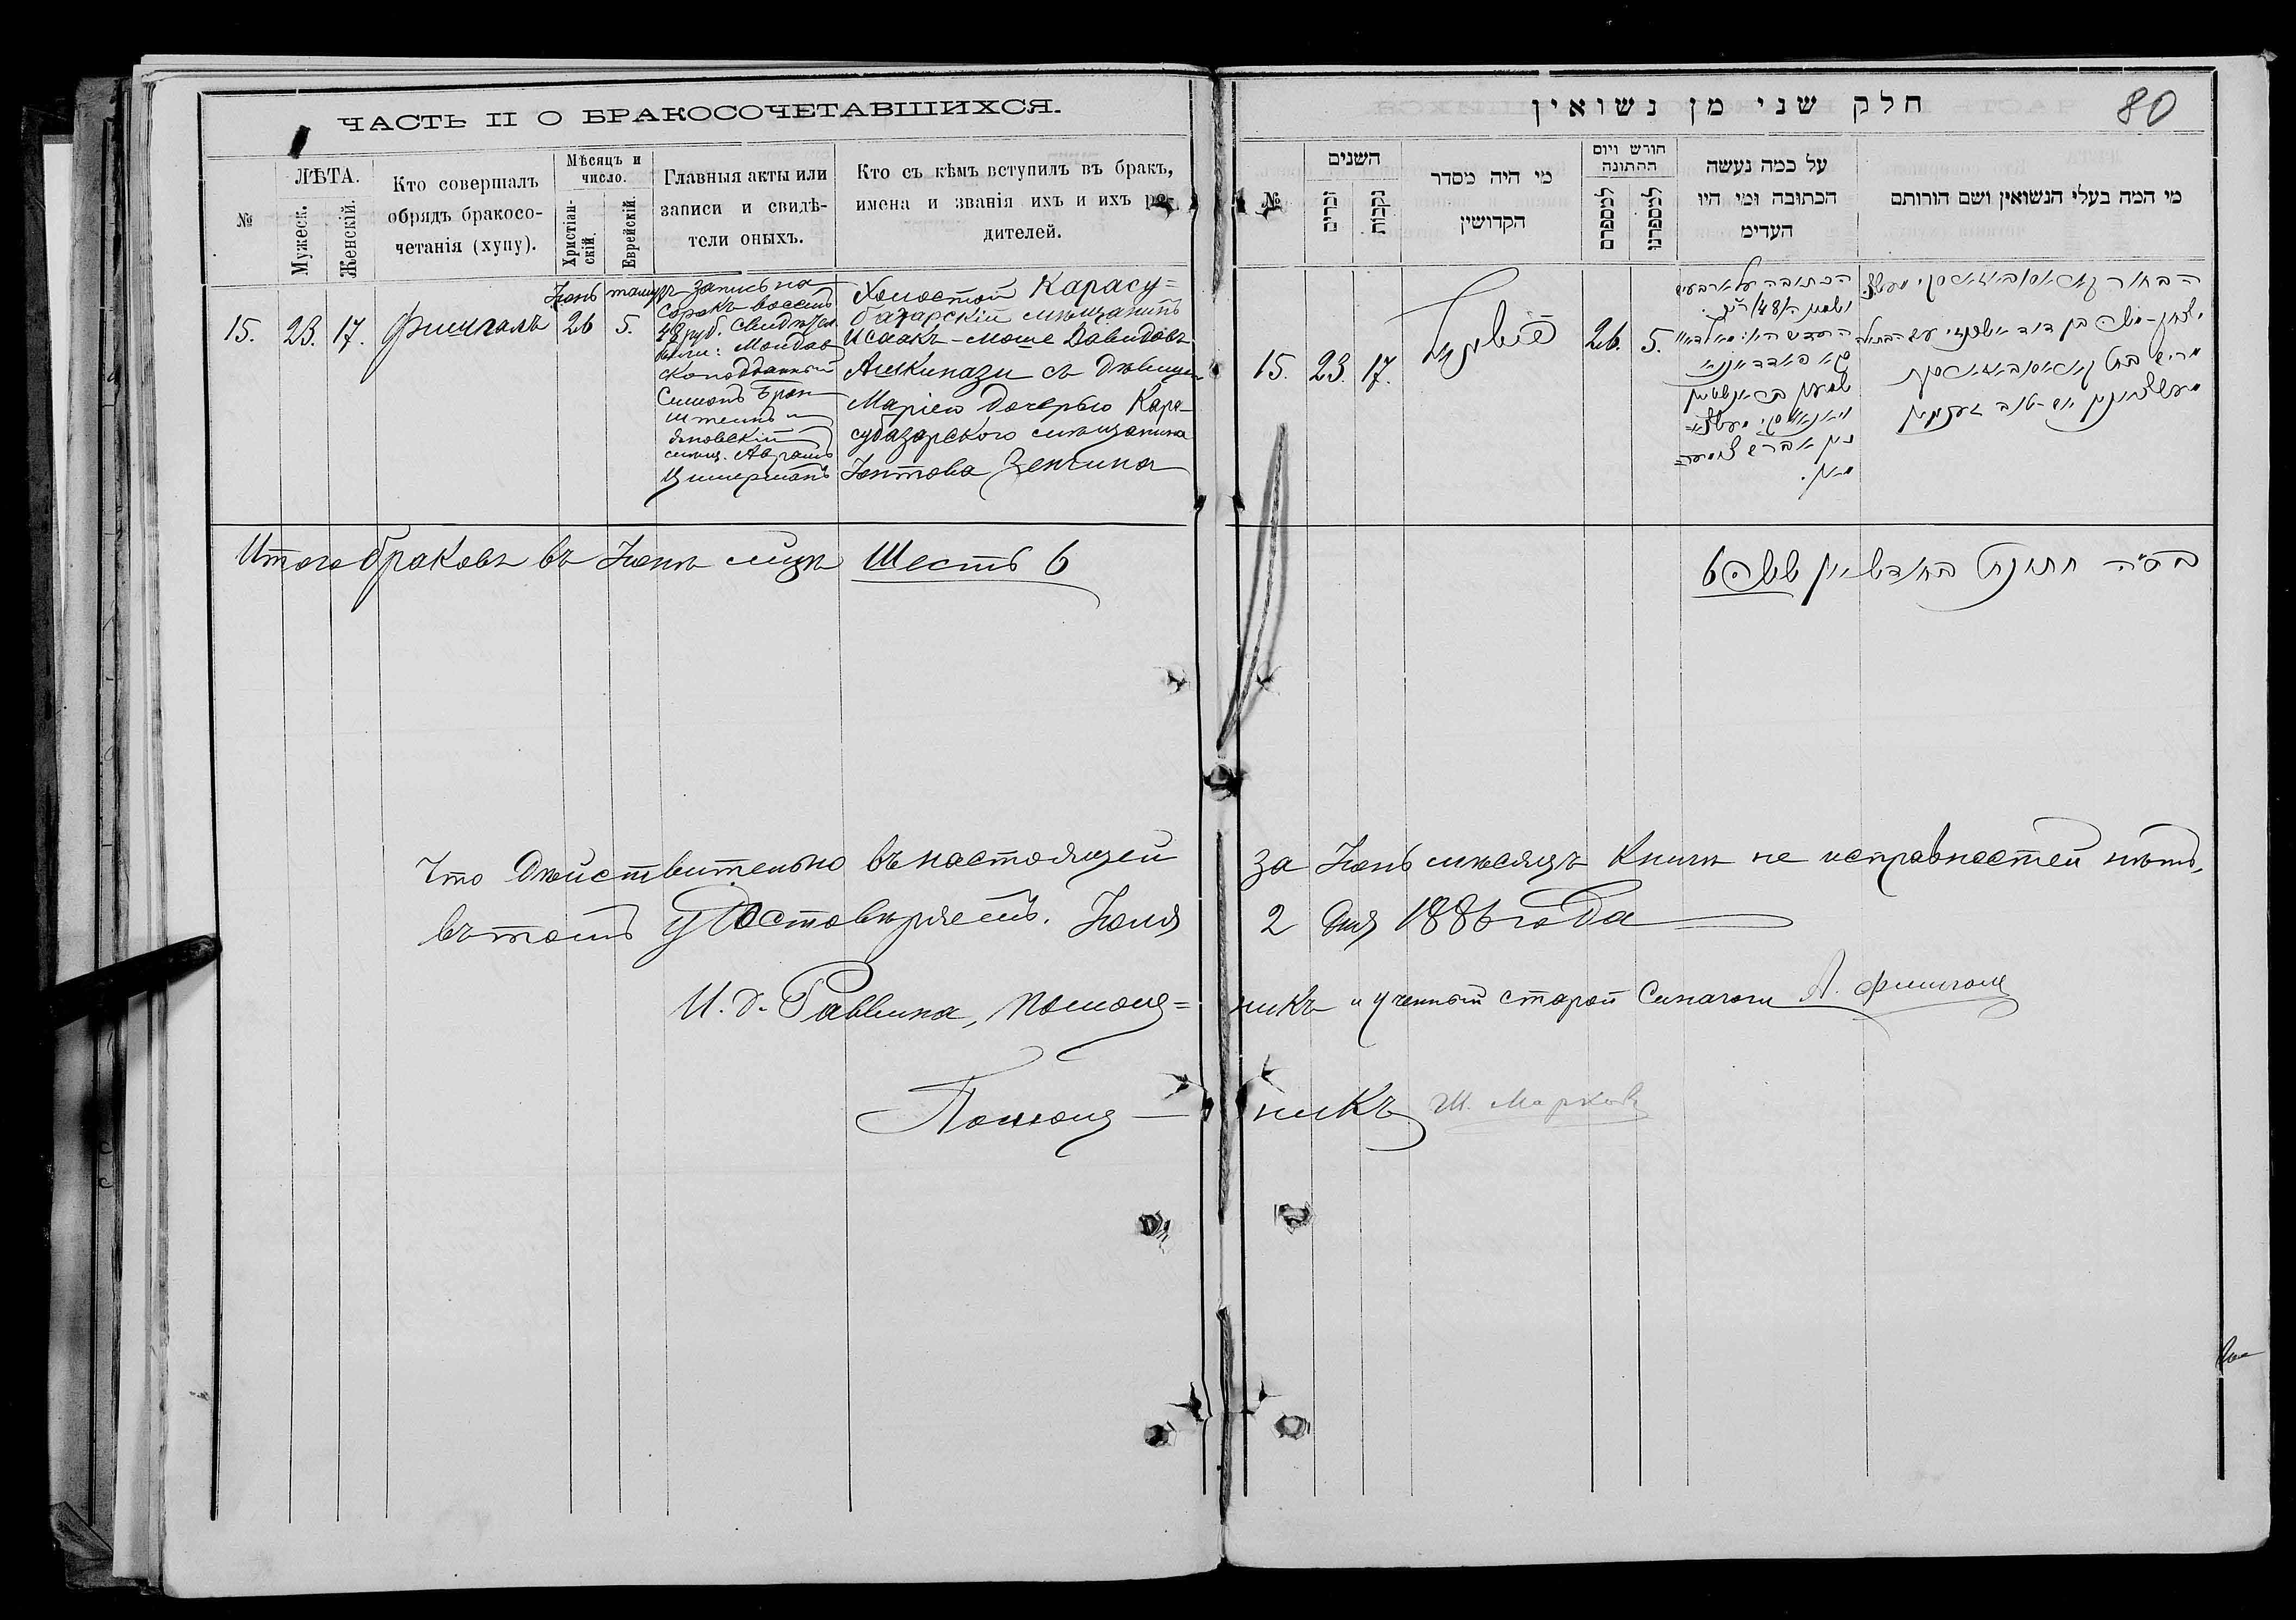 ЧАСТЬ II О БРАКОСОЧЕТАВШИХСЯ.
№
ЛѢТА.
Мужеск.
Женскій.
Кто совершалъ
обрядъ бракосо-
четанія (хупу).
Мѣсяцъ и
число.
Христіан-
скій.
Еврейскій.
Главныя акты или
записи и свидѣ-
тели оныхъ.
Кто съ кѣмъ вступилъ въ бракъ,
имена и званія ихъ и ихъ ро-
дителей.
15.
23.
17.
Фишгалъ
Іюнь
26
тамузъ
5.
Запись на
сорокъ восемь
48 руб. Свидѣтел.
были: Молдав
скоподданный
Симонъ Брон
штейнъ и
ановскій
мѣщ. Абрамъ
Цимерманъ
Холостой Карасу=
базарскій мѣщанинъ
Исаакъ-Моше Давидовъ
Ашкинази съ дѣвицею
Маріею дочерью Кара-
субазарского мѣщанина
Іонтова Зенгина
Итого браковъ въ Іюнѣ мцѣ Шесть 6
חלק שני מן נשואין
80
№
השנים
זכרים
נקבות
מי היה מסדר
הקדושין
חודש ויום
החתונה
למספרם
למספרנו
על כמה נעשה
הכתובה ומי היו
העדים
מי המה בעלי הנשואין ושם הורותם
15.
23.
17.
פישגאל
26.
5.
הכתובה על ארבעים
ושמנה /48/
הבחור
יצחק-משה בן דוד אשכנזי עם הבתולה
מרים בת
יום-טוב זענגין
בס״ה חתונות בחודש יון ששה 6
Что дѣйствительно въ настоящей за Іюнь мѣсяцъ книги не исправностей нѣтъ,
въ томъ удостовѣряемъ. Іюля 2 дня 1886 года
И. д. Раввина, помощ= никъ и ученный старой Синагоги А. Фишгалъ
Помощ— никъ Ш. Марковъ